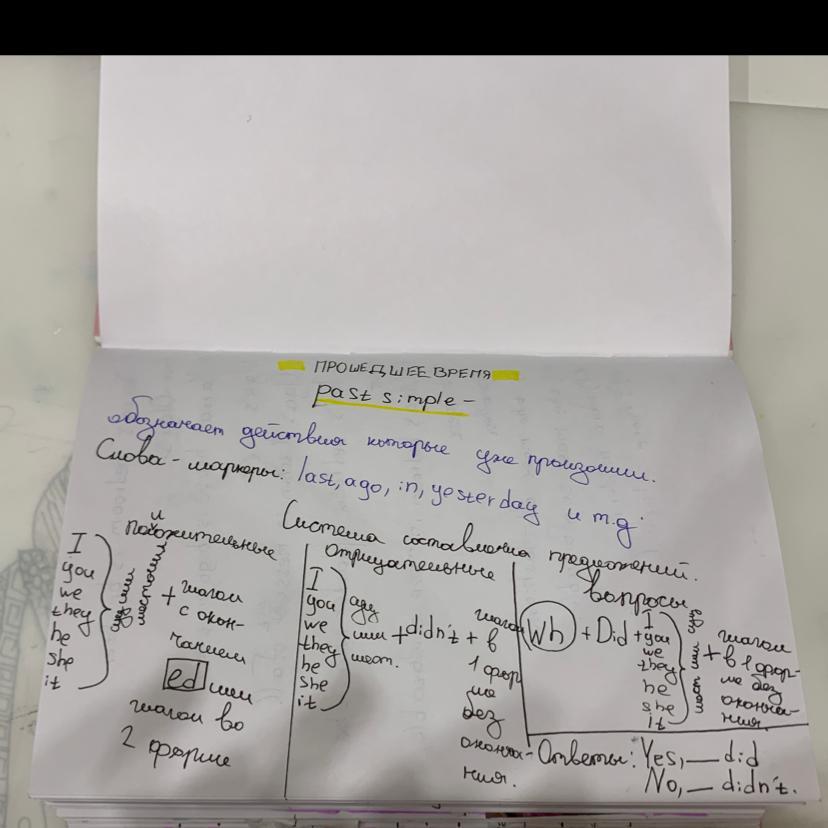 ПРОШЕДШЕЕ ВРЕМЯ
past simple -
обозначает действия которые уже произошли.
Слова-маркеры: last, ago, in, yesterday и т.д.
Система составления предложений.
Положительные
I
you
we
they
he
she
it
сущ или местоим
+ глагол
с окон-
чанием
ed или
глагол во
2 форме
Отрицательные
I
you
we
they
he
she
it
сущ
или
мест.
+ didn't + глагол
в
1 фор
ме
без
оконча-
ния.
Вопросы
Wh + Did +
I
you
we
they
he
she
it
мест или сущ
+ глагол
в 1 фор-
ме без
оконча-
ния.
Ответы: Yes, — did
No, — didn't.